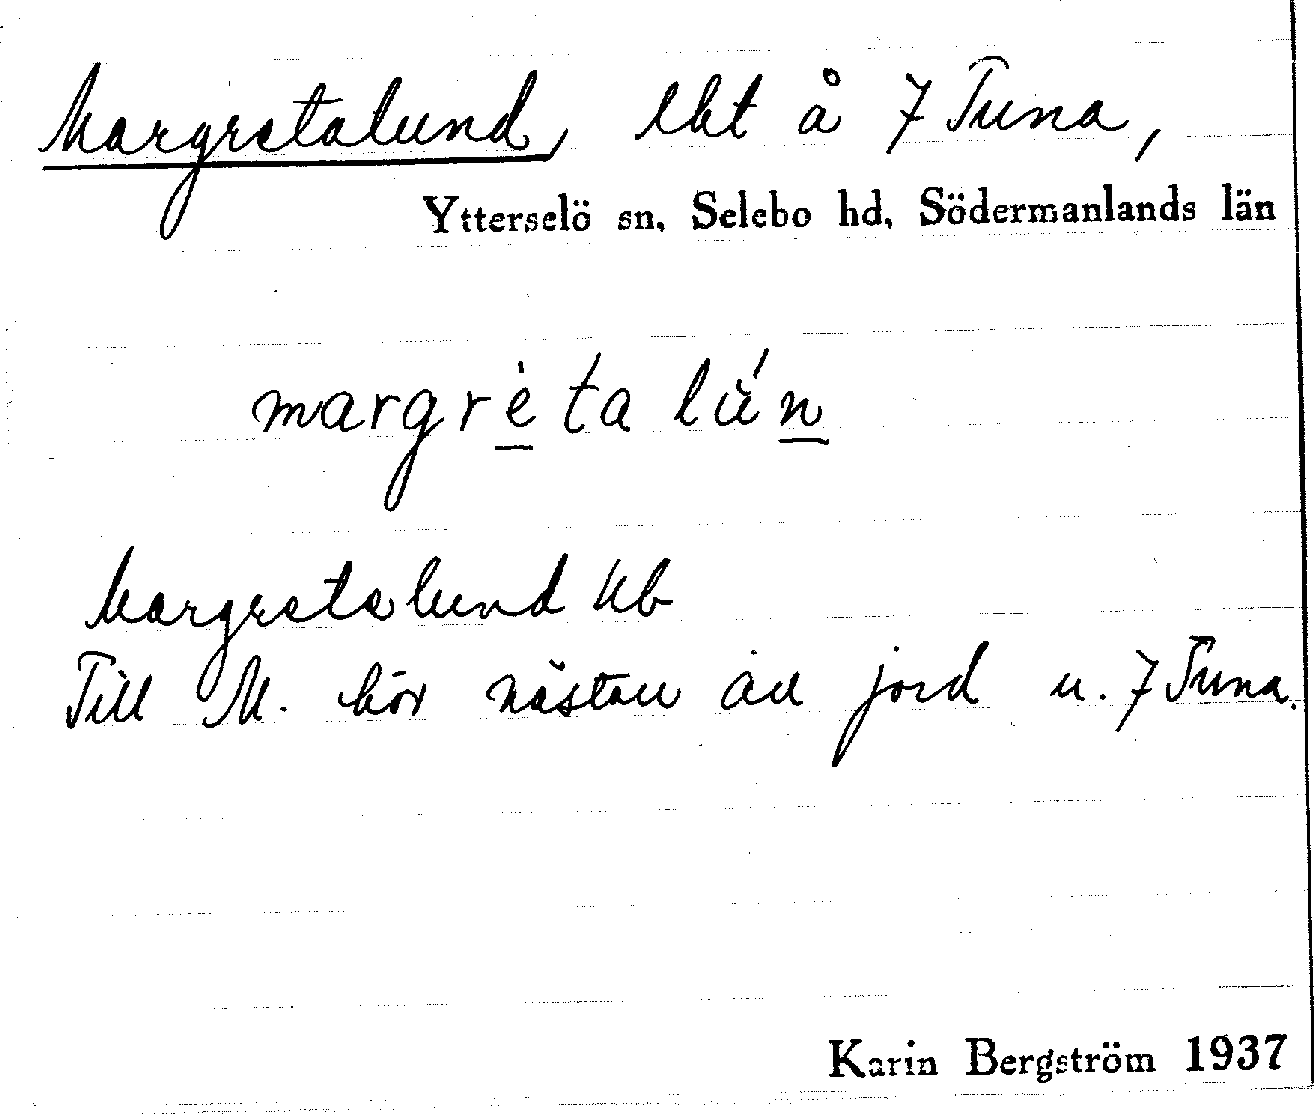 Margretalund, lht å 7 Tuna,
Ytterselö sn, Selebo hd, Södermanlands län
margrè̱ta lúṉ
Margretalund kb
Till M. hör nästan all jord u. 7 Tuna.
Karin Bergström 1937